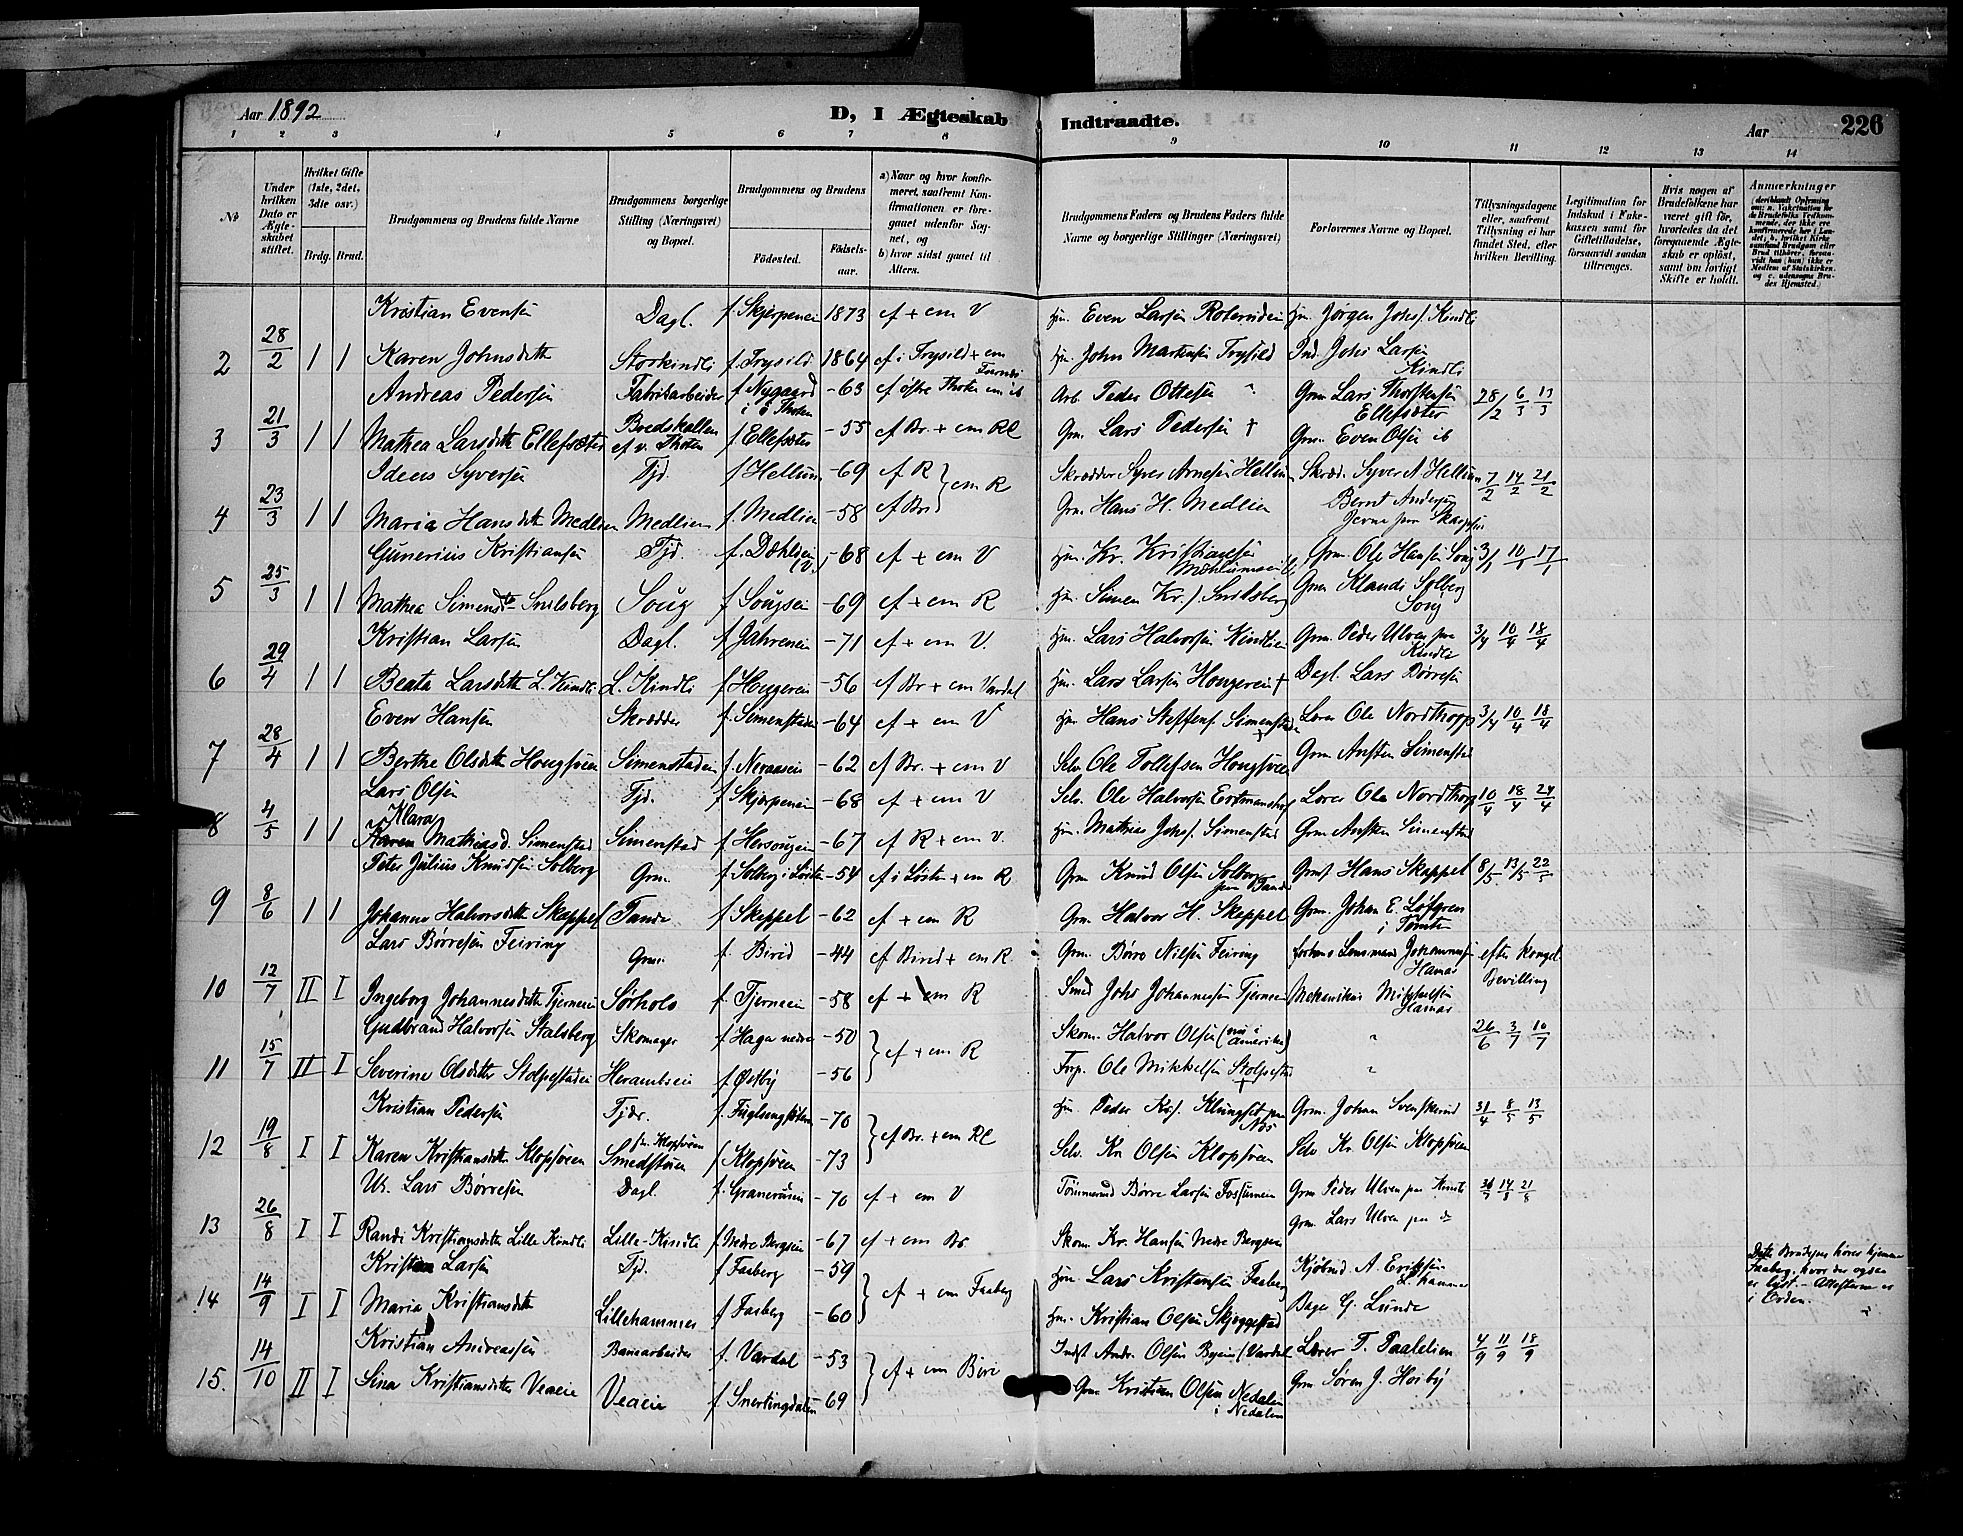 Aar 1892
D, I Ægteskab
Indtraadte.
Aar
226
1 2 3 4 5 6 7 8 9 10 11 12 13 14
No
Under hvilken Dato er Ægteskabet stiftet.
Hvilket Gifte (1ste, 2det, 3die osv.)
Brdg. Brud.
Brudgommens og Brudens fulde Navne
Brudgommens borgerlige Stilling (Næringsvei) og Bopæl.
Brudgommens og Brudens
Födested.
Födsels-aar.
a) Naar og hvor konfirmeret, saafremt Konfirmationen er foregaaet udenfor Sognet, og b) hvor sidst gaaet til Alters.
Brudgommens Faders og Brudens Faders fulde Navne og borgerlige Stillinger (Næringsvei)
Forlovernes Navne og Bopæl.
Tillysningsdagene eller, saafremt Tillysning ei har fundet Sted, efter hvilken Bevilling.
Legitimation for Indskud i Enkekassen samt for Giftetilladelse, forsaavidt saadan tiltrænges.
Hvis nogen af Brudefolkene har været gift för, hvorledes da det foregaaende Ægteskab er oplöst, samt om lovligt Skifte er holdt.
Anmærkninger
Kristian Evensen Dagl. f. Skjerpeneie 1873 cf + em V Hm. Even Larsen Hm. Jørgen Johs. Kindli
2 28/2 1 1 Karen Johnsdtr Storkindli f. Trysild 1864 cf i Trysild + em Furnæs Hm. John Martinsen Trysild Ind. Johs Larsen Kindli
Andreas Pedersen Fabrikarbeider f. Nygaard i Ø Thoten -63 cf østre Thoten em ib Arb. Peder Ottesen " Grm Lars Thorstensen Ellefsæter 28/2 6/3 13/3
3 21/3 1 1 Mathea Larsdtr Ellefsæter Bredskallen cf v. Thoten f Ellefsæter -55 cf Br. + em Rl Grm. Lars Pedersen + Grm. Even Olsen ib
Ideus Syversen Tjd. f Hellum -69 cf R } em R Skrædder Syver Arnesen Hellum Skræd. Syver A. Hellum 7/2 14/2 21/2
4 23/3 1 1 Maria Hansdtr Medlien Medlien f. Medlien -58 cf Bri Grm. Hans H. Medlien Bernt Andersen
Gunerius Kristiansen Tjd. f. Dæhleneie (V.) -68 cf + em V Hm. Kr. Kristiansen Grm. Ole Hansen Soug 3/1 10/1 17/1
5 25/3 1 1 Mathea Simensdtr Snilsberg Soug f Sougseie -69 cf + em R Hm. Simen Kr.s. Snilsberg Grm Klandi Solberg Soug
Kristian Larsen Dagl. f Jahreneie -71 cf + em V. Hm. Lars Halvorsen Kindlien Grm. Peder Ulven paa Kindli 3/4 10/4 18/4
6 29/4 1 1 Beata Larsdtr L. Kindli L. Kindli f Hougereie -56 cf Br + em Vardal Hm. Lars Larsen Hougereie + Dagl. Lars Børresen
Even Hansen Skrædder f. Simenstaden -64 cf + em V Hm Hans Steffens. Simenstaden + Lærer Ole Nordthorp 3/4 10/4 18/4
7 28/4 1 1 Berthe Olsdtr Hougsveen Simenstaden f. Neraaseie -62 cf Br. + em V Selv. Ole Tollefsen Hougsveen Grm Austen Simenstad
Lars Olsen Tjd. f Skjerpeneie -68 cf + em V Selv. Ole Halvorsen Lærer Ole Nordthorp 10/4 18/4 24/4
8 4/5 1 1 Klara Karen Mathiasd. Simenstad Simenstad f Hersougeie -67 cf R + em V. Hm. Mathias Johs. Simenstad Grm Austen Simenstad
Peter Julius Knudsen Solberg Grm. f Solberg i Løiten -54 cf i Løiten + em R Grm Knud Olsen Solberg paa Tande Grm Hans Skappel 8/5 13/5 22/5
9 8/6 1 1 Johanne Halvorsdtr Skappel Tande f Skeppel -62 cf + em R Grm. Halvor H. Skeppel Grm. Johan E. Løfgren i Tomten
Lars Børresen Feiring Grm. f. Birid -44 cf Birid + em R. Grm. Børre Nilsen Feiring forhens Lensmand Johannesen Hamar efter kongel. Bevilling
10 12/7 II I Ingeborg Johannesdtr Tjerneie Sørhols f. Tjerneie -58 cf + em R Smed Johs Johannesen Tjerneie Mekanikus Mikkelsen Hamar
Gudbrand Halvorsen Stalsberg Skomager f Haga nedre -50 } cf + em R Skom. Halvor Olsen (nu i Amerika) " 26/6 3/7 10/7
11 15/7 II I Severine Olsdtr Stolpestadei Herambseie f Østby -56 Frp. Ole Mikkelsen Stolpestad + "
Kristian Pedersen Tjdr. f Fuglungstuen -70 } cf Br. + em Rl Hm. Peder Kr.s. Klungset paa Næs Grm. Johan Svenskerud 31/4 8/5 13/5
12 19/8 I I Karen Kristiansdtr Klopsveen Smedstuen p. Klopsveen f Klopsveen -73 Selv. Kr. Olsen Klopsveen Selv Kr. Olsen Klopsveen
Uk. Lars Børresen Dagl. f. Graneruseie -70 cf + em V Tømmermd Børre Larsen Fossumeie Grm Peder Ulven paa Kindli 14/8 21/8
13 26/8 I I Randi Kristiansdtr Lille Kindli Lille-Kindli f Nedre Bergseie -67 cf + em Br. Skom. Kr. Hansen Nedre Bergseie Grm. Lars Ulven paa do
Kristian Larsen Tjd. f Faaberg -59 } cf + em Faaberg Hm. Lars Kristensen Faaberg Kjøbmd. A. Eriksen L.hammer
14 14/9 I I Maria Kristiansdtr Lillehammer f. Faaberg -60 Hm. Kristian Olsen Skjeggestad Bager G. Lunde
Dette Brudepar hører hjemme Faaberg, hvor der ogsaa er lyst. – Attesterne er i Orden.
Kristian Andreassen Banearbeider f. Vardal -53 } cf + em Biri Indst Andr. Olsen Byeie (Vardal Lærer T. Paalelien 4/9 11/9 18/9
15. 14/10 II I Sina Kristiansdtr Veaeie Veaeie f Snertingdalen -69 Grm Kristian Olsen Nedalen i Nedalen Grm Søren J. Høiby